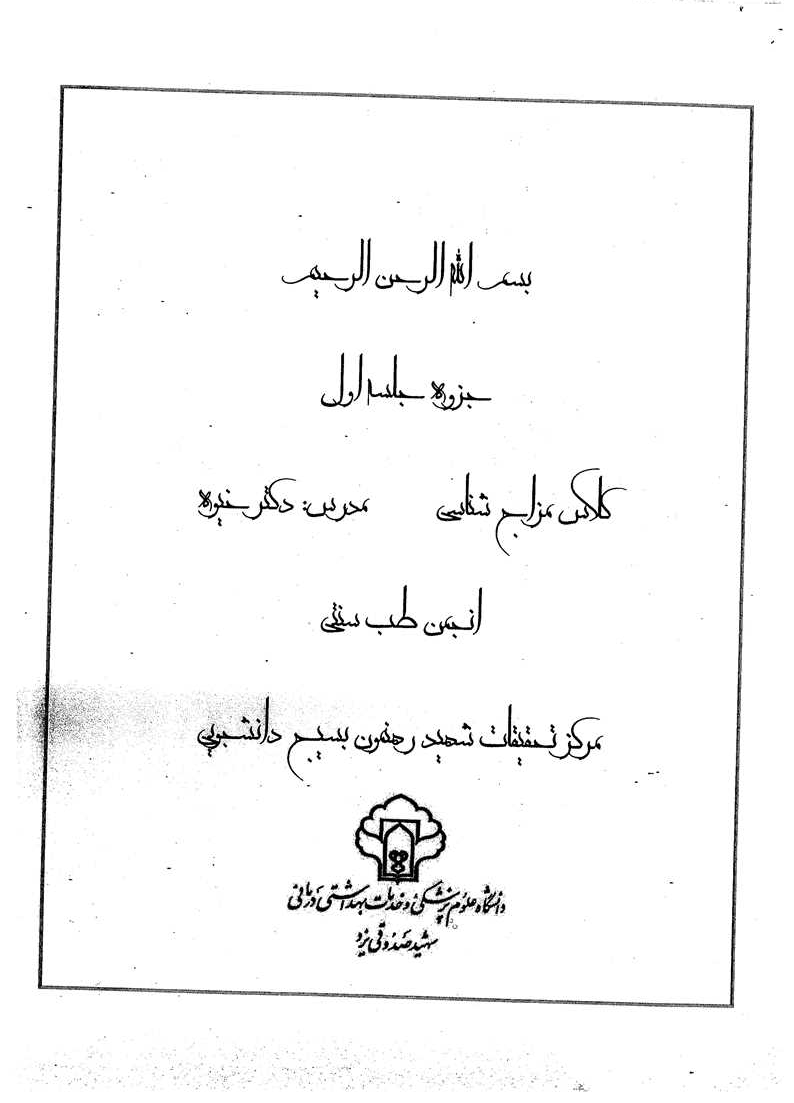 بسم الله الرحمن الرحیم
جزوه جلسه اول
کلاس مزاج شناسی مدرس: دکتر خیره
انجمن طب سنتی
مرکز تحقیقات شهید رهنمون بسیج دانشجویی
دانشگاه علوم پزشکی و خدمات بهداشتی درمانی
شهید صدوقی یزد